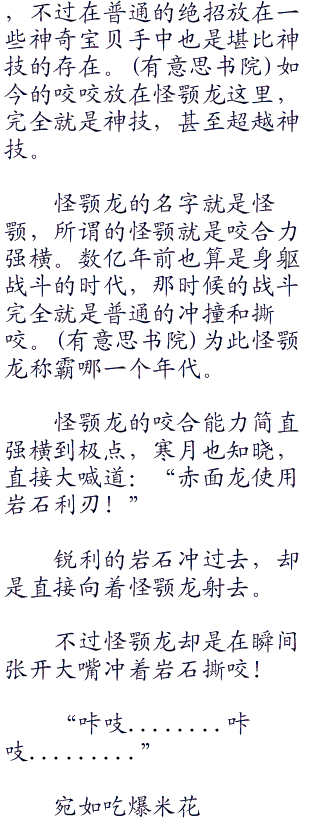 ，不过在普通的绝招放在一
些神奇宝贝手中也是堪比神
技的存在。(有意思书院)如
今的咬咬放在怪颚龙这里，
完全就是神技，甚至超越神
技。
怪颚龙的名字就是怪
颚，所谓的怪颚就是咬合力
强横。数亿年前也算是身躯
战斗的时代，那时候的战斗
完全就是普通的冲撞和撕
咬。(有意思书院)为此怪颚
龙称霸哪一个年代。
怪颚龙的咬合能力简直
强横到极点，寒月也知晓，
直接大喊道：“赤面龙使用
岩石利刃！”
锐利的岩石冲过去，却
是直接向着怪颚龙射去。
不过怪颚龙却是在瞬间
张开大嘴冲着岩石撕咬！
“咔吱........咔
吱.........”
宛如吃爆米花